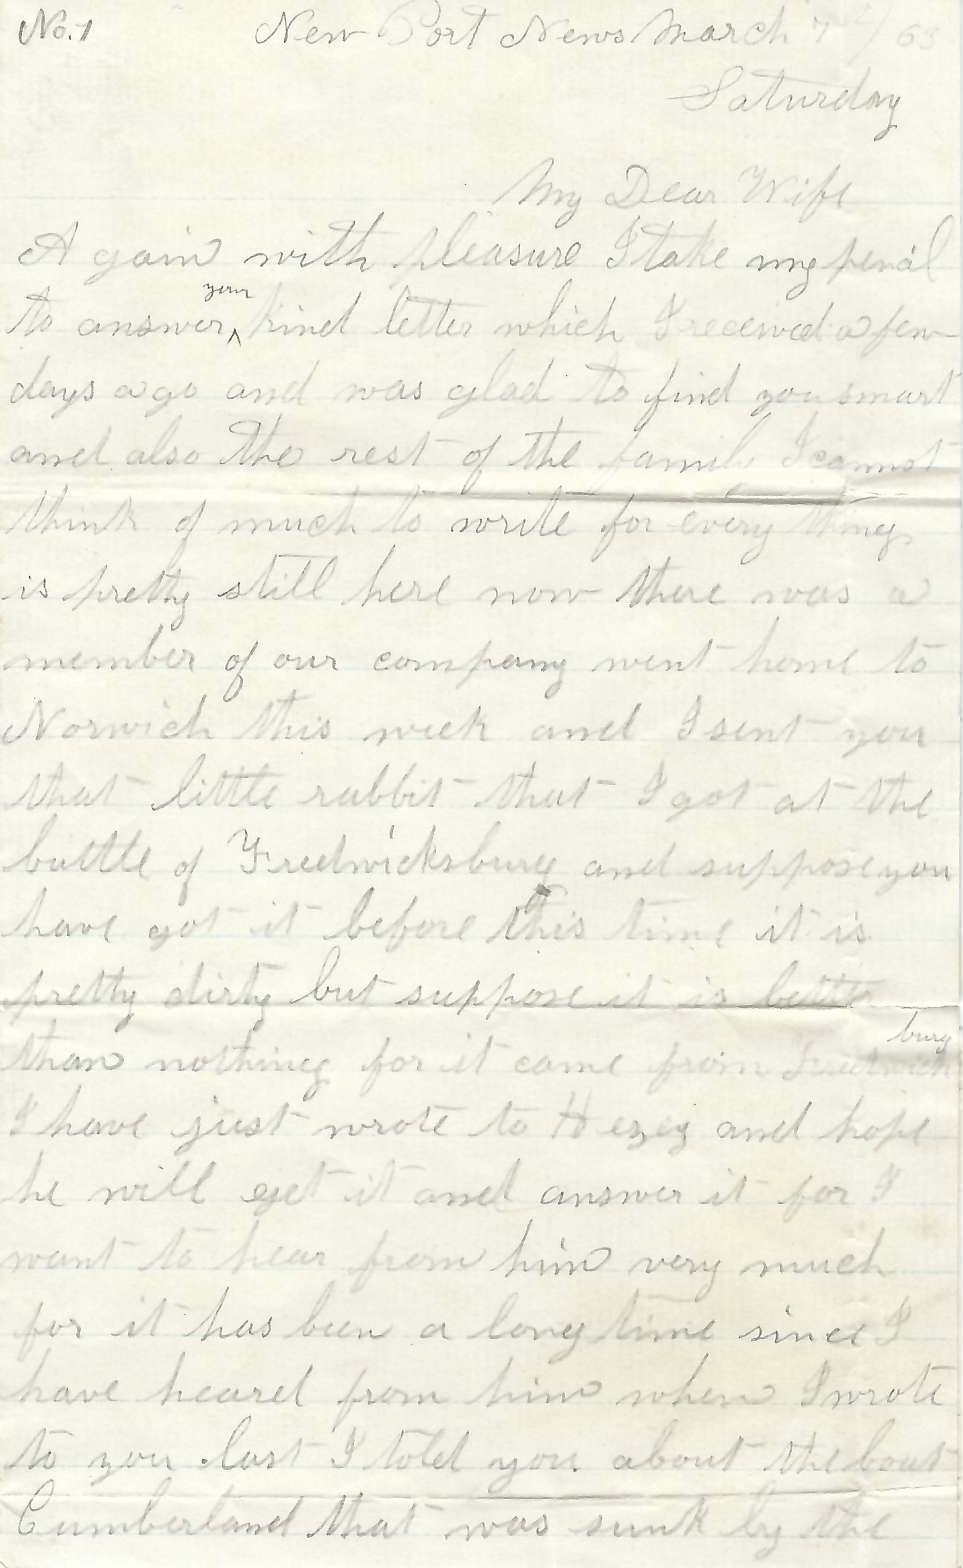 No. 1 New Port News March 7th / 63
Saturday
My Dear Wife
A gain with pleasure I take my pencil
to answer ^your kind letter which I receivd a few
days ago and was glad to find you smart
and also the rest of the family I cannot
think of much to write for every thing
is pretty still here now there was a
member of our company went home to
Norwich this week and I sent you
that little rabbit that I got at the
battle of Fredricksburg and suppose you
have got it before this time it is
pretty dirty but suppose it is better
than nothing for it came from Fredrick burg
I have just wrote to Hezey and hope
he will get it and answer it for I
want to hear from him very much
for it has been a long time since I
have heard from him when I wrote
to you last I told you about the boat
Cumberland that was sunk by the